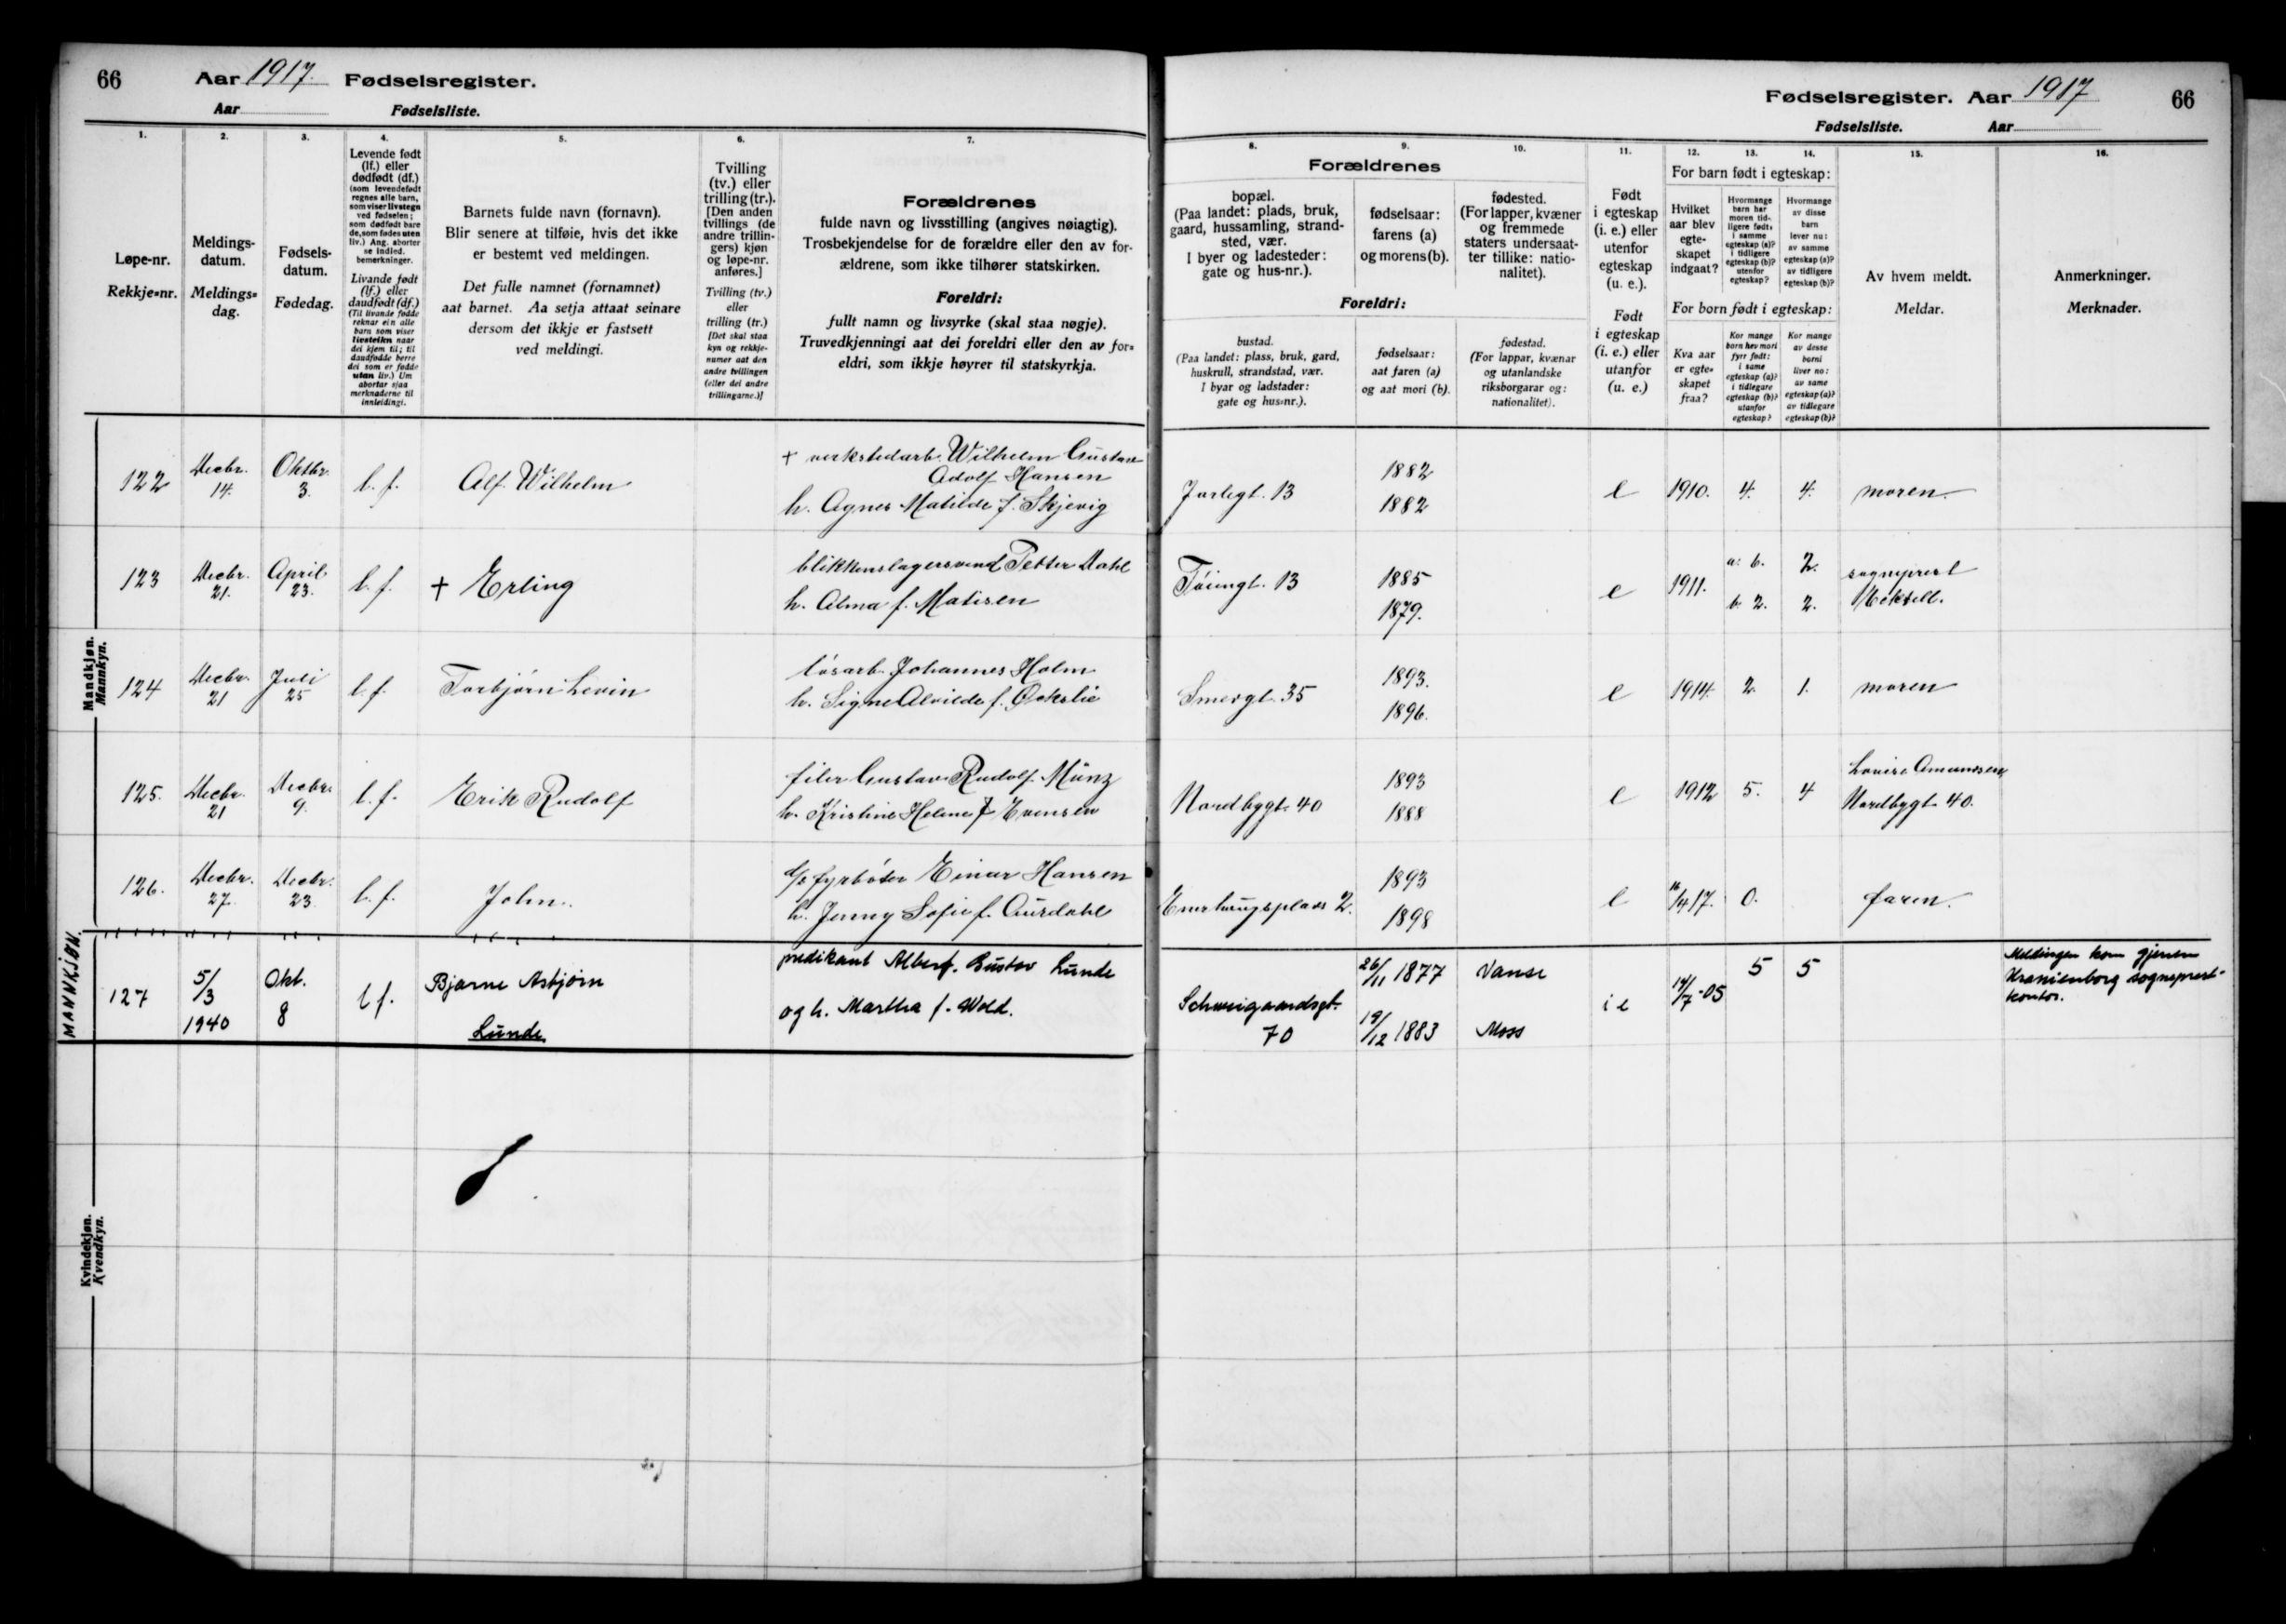 66 Aar 1917. Fødselsregister.
Aar Fødselsliste.
Fødselsregister. Aar 1917 66
Fødselsliste. Aar
1.
Løpe-nr.
Rekkje=nr.
2.
Meldings-
datum.
Meldings=
dag.
3.
Fødsels-
datum.
Fødedag.
4.
Levende født
(lf.) eller
dødfødt (df.)
(som levendefødt
regnes alle barn,
som viser livstegn
ved fødselen;
som dødfødt bare
de, som fødes uten
liv.) Ang. aborter
se indled.
bemerkninger.
Livande født
(lf.) eller
daudfødt (df.)
(Til livande fødde
reknar ein alle
barn som viser
livsteikn naar
dei kjem til; til
daudfødde berre
dei som er fødde
utan liv.) Um
abortar sjaa
merknaderne til
innleidingi.
5.
Barnets fulde navn (fornavn).
Blir senere at tilføie, hvis det ikke
er bestemt ved meldingen.
Det fulle namnet (fornamnet)
aat barnet. Aa setja attaat seinare
dersom det ikkje er fastsett
ved meldingi.
6.
Tvilling
(tv.) eller
trilling (tr.).
[Den anden
tvillings (de
andre trillin-
gers) kjøn
og løpe-nr.
anføres.]
Tvilling (tv.)
eller
trilling (tr.)
[Det skal staa
kyn og rekkje-
numer aat den
andre tvillingen
(eller dei andre
trillingarne.)]
7.
Forældrenes
fulde navn og livsstilling (angives nøiagtig).
Trosbekjendelse for de forældre eller den av for-
ældrene, som ikke tilhører statskirken.
Foreldri:
fullt namn og livsyrke (skal staa nøgje).
Truvedkjenningi aat dei foreldri eller den av for=
eldri, som ikkje høyrer til statskyrkja.
Forældrenes
8.
bopæl.
(Paa landet: plads, bruk,
gaard, hussamling, strand-
sted, vær.
I byer og ladesteder:
gate og hus-nr.).
9.
fødselsaar:
farens (a)
og morens (b).
10.
fødested.
(For lapper, kvæner
og fremmede
staters undersaat-
ter tillike: natio-
nalitet).
Foreldri:
bustad.
(Paa landet: plass, bruk, gard,
huskrull, strandstad, vær.
I byar og ladstader:
gate og hus=nr.).
fødselsaar:
aat faren (a)
og aat mori (b).
fødestad.
(For lappar, kvænar
og utanlandske
riksborgarar og:
nationalitet).
11.
Født
i egteskap
(i. e.) eller
utenfor
egteskap
(u. e.).
Født
i egteskap
(i. e.) eller
utanfor
(u. e.)
12. 13. 14.
For barn født i egteskap:
Hvilket
aar blev
egte-
skapet
indgaat?
Hvormange
barn har
moren tid-
ligere født:
i samme
egteskap (a)?
i tidligere
egteskap (b)?
utenfor
egteskap?
Hvormange
av disse
barn
lever nu:
av samme
egteskap (a)?
av tidligere
egteskap (b)?
For born født i egteskap:
Kva aar
er egte=
skapet
fraa?
Kor mange
born hev mori
fyrr født:
i same
egteskap (a)?
i tidlegare
egteskap (b)?
utanfor
egteskap?
Kor mange
av desse
borni
liver no:
av same
egteskap (a)?
av tidlegare
egteskap (b)?
15.
Av hvem meldt.
Meldar.
16.
Anmerkninger.
Merknader.
Mandkjøn.
Mannkyn.
122 Decbr. 14. Oktbr. 3. l. f. Alf Wilhelm
† verkstedarb. Wilhelm Gustav
Adolf Hansen
h. Agnes Matilde f. Skjevig
Jarlegt. 13 1882 1882 e 1910. 4. 4. moren.
123 Decbr. 21. April 23. l. f. † Erling
blikkenslagersvend Petter Dahl
h. Alma f. Matisen
Tøiengt. 13 1885 1879. e 1911. a: 6. 2. b. 2. 2. sogneprest
124 Decbr. 21 Juli 25 l. f. Torbjørn Levin
løsarb. Johannes Holm
h. Signe Alvilde f.
Smergt. 35 1893. 1896. e 1914. 2. 1. moren
125. Decbr. 21 Decbr. 9. l. f. Erik Rudolf
filer Gustav Rudolf Münz
h. Kristine Helene f Evensen
Nordbygt. 40 1893 1888 e 1912 5. 4 Lovise Amundsen,
Nordbygt 40.
126. Decbr. 27. Decbr. 23 l. f. John.
fyrbøter Einar Hansen
h. Jenny Sofie f. Aurdahl
Enerhaugsplass 2. 1893 1898 e 16/4 17. 0. faren.
MANNKJØN.
127 5/3 1940 Okt. 8 l f. Bjarne Asbjørn
Lunde
predikant Albert Gustav Lunde
og h. Martha f. Wold.
Schweigaardsgt. 70 26/11 1877 Vanse
19/12 1883 Moss
i e 14/7 -05 5 5
Meldingen kom gjennem
Uranienborg sogneprest-
kontor.
Kvindekjøn.
Kvendkyn.